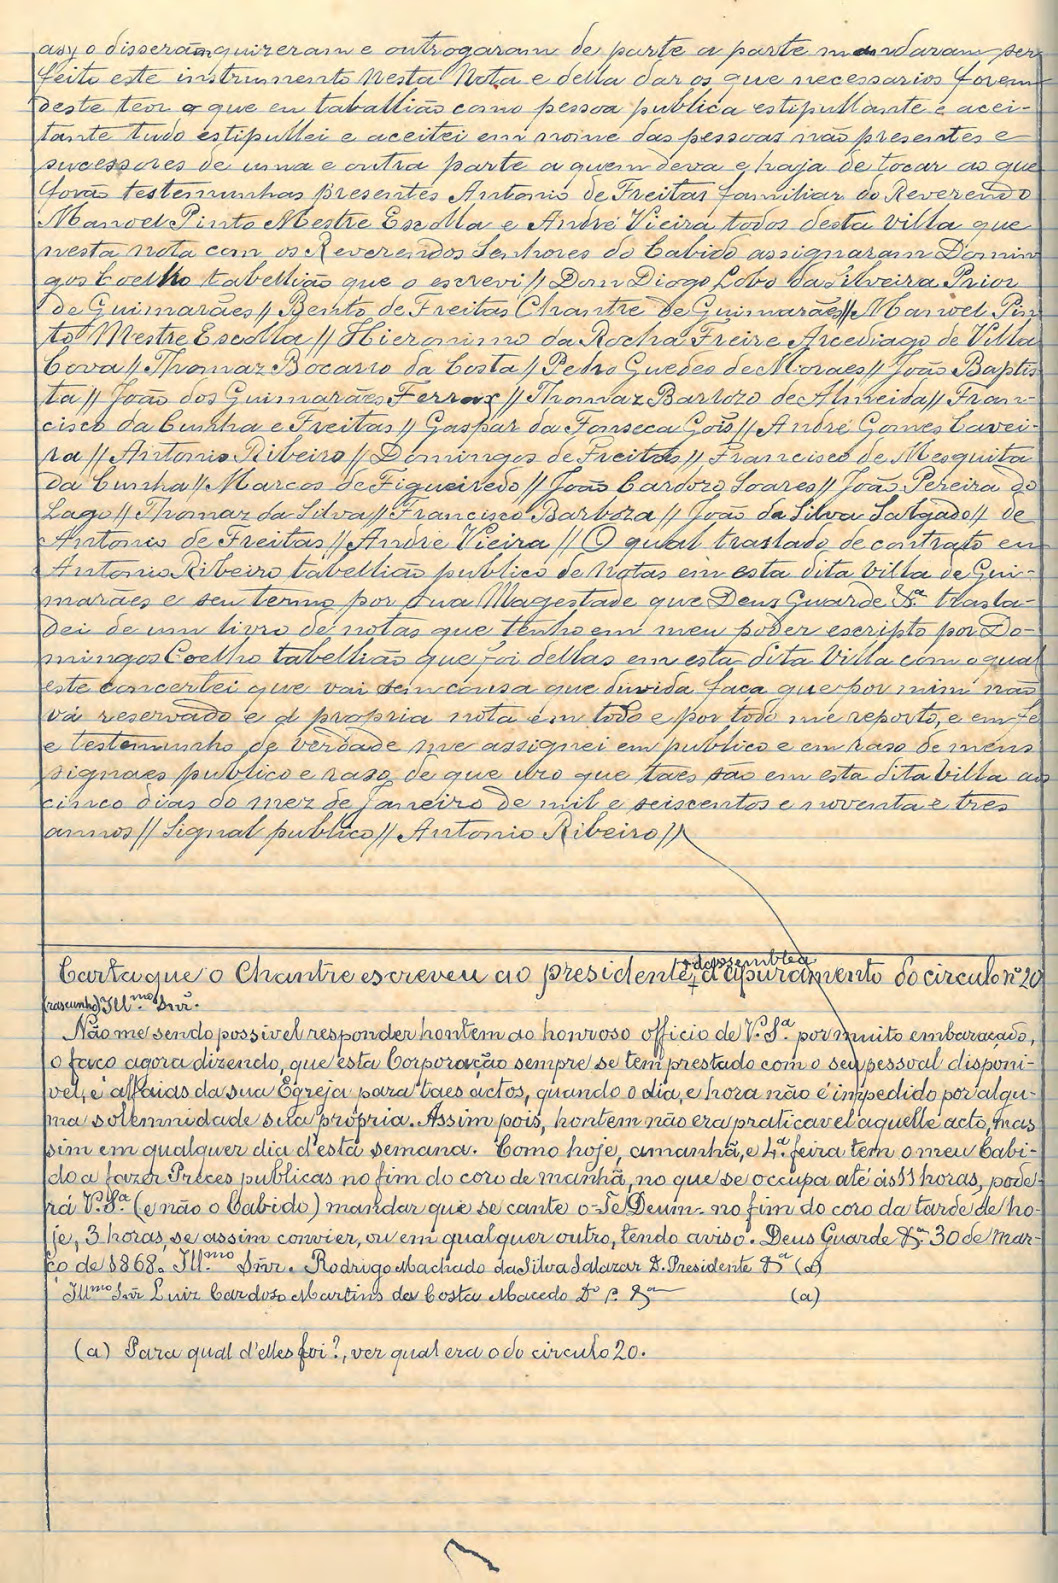 asy o disserão, quizeram e outrogaram de parte a parte mandaram ser
feito este instrumento nesta Nota e della dar os que necessarios forem
deste teor o que eu taballião como pessoa publica estipullante e acei-
tante tudo estipullei e aceitei em nome das pessoas não presentes e
sucessores de uma e outra parte a quem deva e haja de tocar ao que
forão testemunhas presentes Antonio de Freitas familiar do Reverendo
Manoel Pinto Mestre Escolla e André Vieira todos desta villa que
nesta nota com os Reverendos Senhores do Cabido assignaram Domin
gos Coelho tabellião que o escrevi // Dom Diogo Lobo da Silveira Prior
de Guimarães // Bento de Freitas Chantre de Guimarães // Manoel Pin
to Mestre Escolla // Hieronimo da Rocha Freire Arcediago de Villa
Cova // Thomaz Bocarro da Costa // Pedro Guedes de Moraes // João Baptis
ta // João dos Guimarães Ferraz // Thomaz Barbozo de Almeida // Fran-
cisco da Cunha e Freitas // Gaspar da Fonseca Gois // André Gomes Cavei-
ra // Antonio Ribeiro // Domingos de Freitas // Francisco de Mesquita
da Cunha // Marcos de Figueiredo // João Cardozo Soares // João Pereira do
Lago // Thomaz da Silva // Francisco Barboza // João da Silva Salgado // de
Antonio de Freitas // André Vieira // O qual traslado de contrato eu
Antonio Ribeiro tabellião publico de Notas em esta dita villa de Gui-
marães e seu termo por Sua Magestade que Deus Guarde &ª trasla-
dei de um livro de notas que tenho em meu poder escripto por Do-
mingos Coelho tabellião que foi dellas em esta dita Villa com o qual
este concertei que vai sem cousa que duvida faça que por mim não
vá reservado e á propria nota em todo e por todo me reporto, e em fé
e testemunho de verdade me assignei em publico e em raso de meus
signaes publico e raso de que uso que taes são em esta dita Villa aos
cinco dias do mez de Janeiro de mil e seiscentos e noventa e tres
annos // Signal publico // Antonio Ribeiro //
Carta que o Chantre escreveu ao presidente da assemblea d'apuramento do circulo nº 20
(rascunho) Ill.mo Snr.
Não me sendo possivel responder hontem ao honroso officio de V.Sª por muito embaraçado,
o faço agora dizendo, que esta Corporação sempre se tem prestado com o seu pessoal disponi-
vel, e alfaias da sua Egreja para taes actos, quando o dia, e hora não é impedido por algu-
ma solemnidade sua própria. Assim pois, hontem não era praticavel aquelle acto, mas
sim em qualquer dia d'esta semana. Como hoje, amanhã, e 4ª feira tem o meu Cabi-
do a fazer Préces publicas no fim do coro de manhã, no que se occupa até ás 11 horas, pode-
rá V.Sª (e não o Cabido) mandar que se cante o-Te Deum- no fim do coro da tarde de ho-
je, 3 horas, se assim convier, ou em qualquer outro, tendo aviso. Deus Guarde &ª 30 de Mar-
ço de 1868. Ill.mo Snr. Rodrigo Machado da Silva Salazar D. Presidente &ª (a)
Ill.mo Snr Luiz Cardoso Martins da Costa Macedo Do P. &a (a)
(a) Para qual d'elles foi?, ver qual era o do circulo 20.